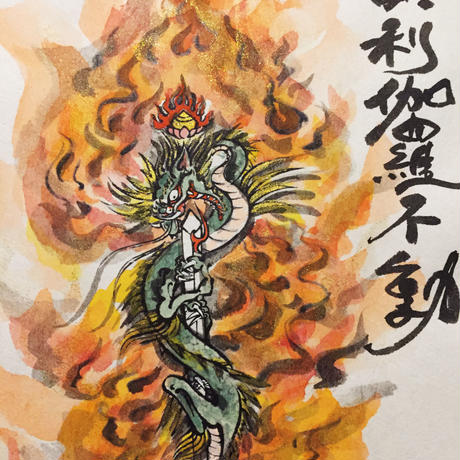 利伽羅不動